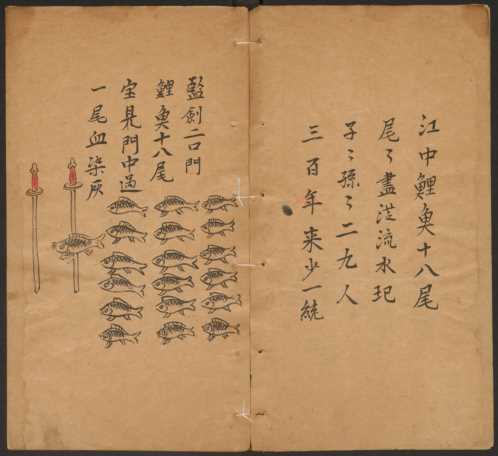 江中鯉魚十八尾
尾〻盡従流水圯
子〻孫〻二九人
三百年来少一統
藍劍二口門
鯉魚十八尾
宝見門中過
一尾血染灰